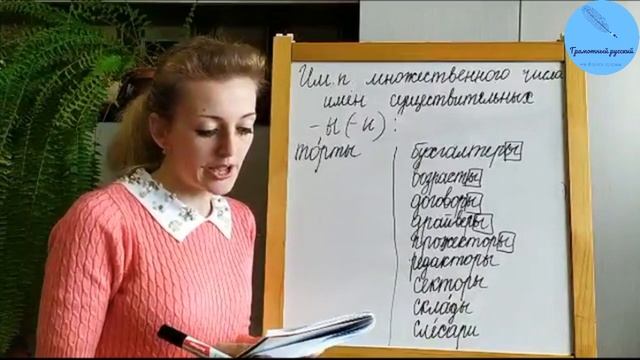 Грамотный русский
Им. п. множественного числа
имён существительных
-ы (-и) :
то́рты
бухгалтеры
возрасты
договоры
драйверы
прожекторы
редакторы
секторы
скла́ды
сле́сари